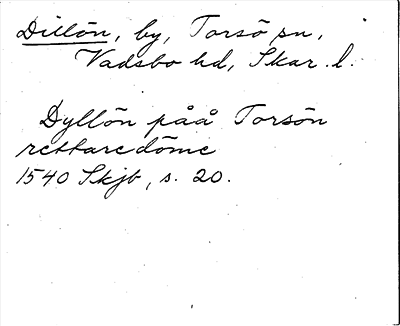 Dillön, by, Torsö sn,
Vadsbo hd, Skar. l.
Dyllön påå Torsön
rettaredöme
1540 Skjb, s. 20.